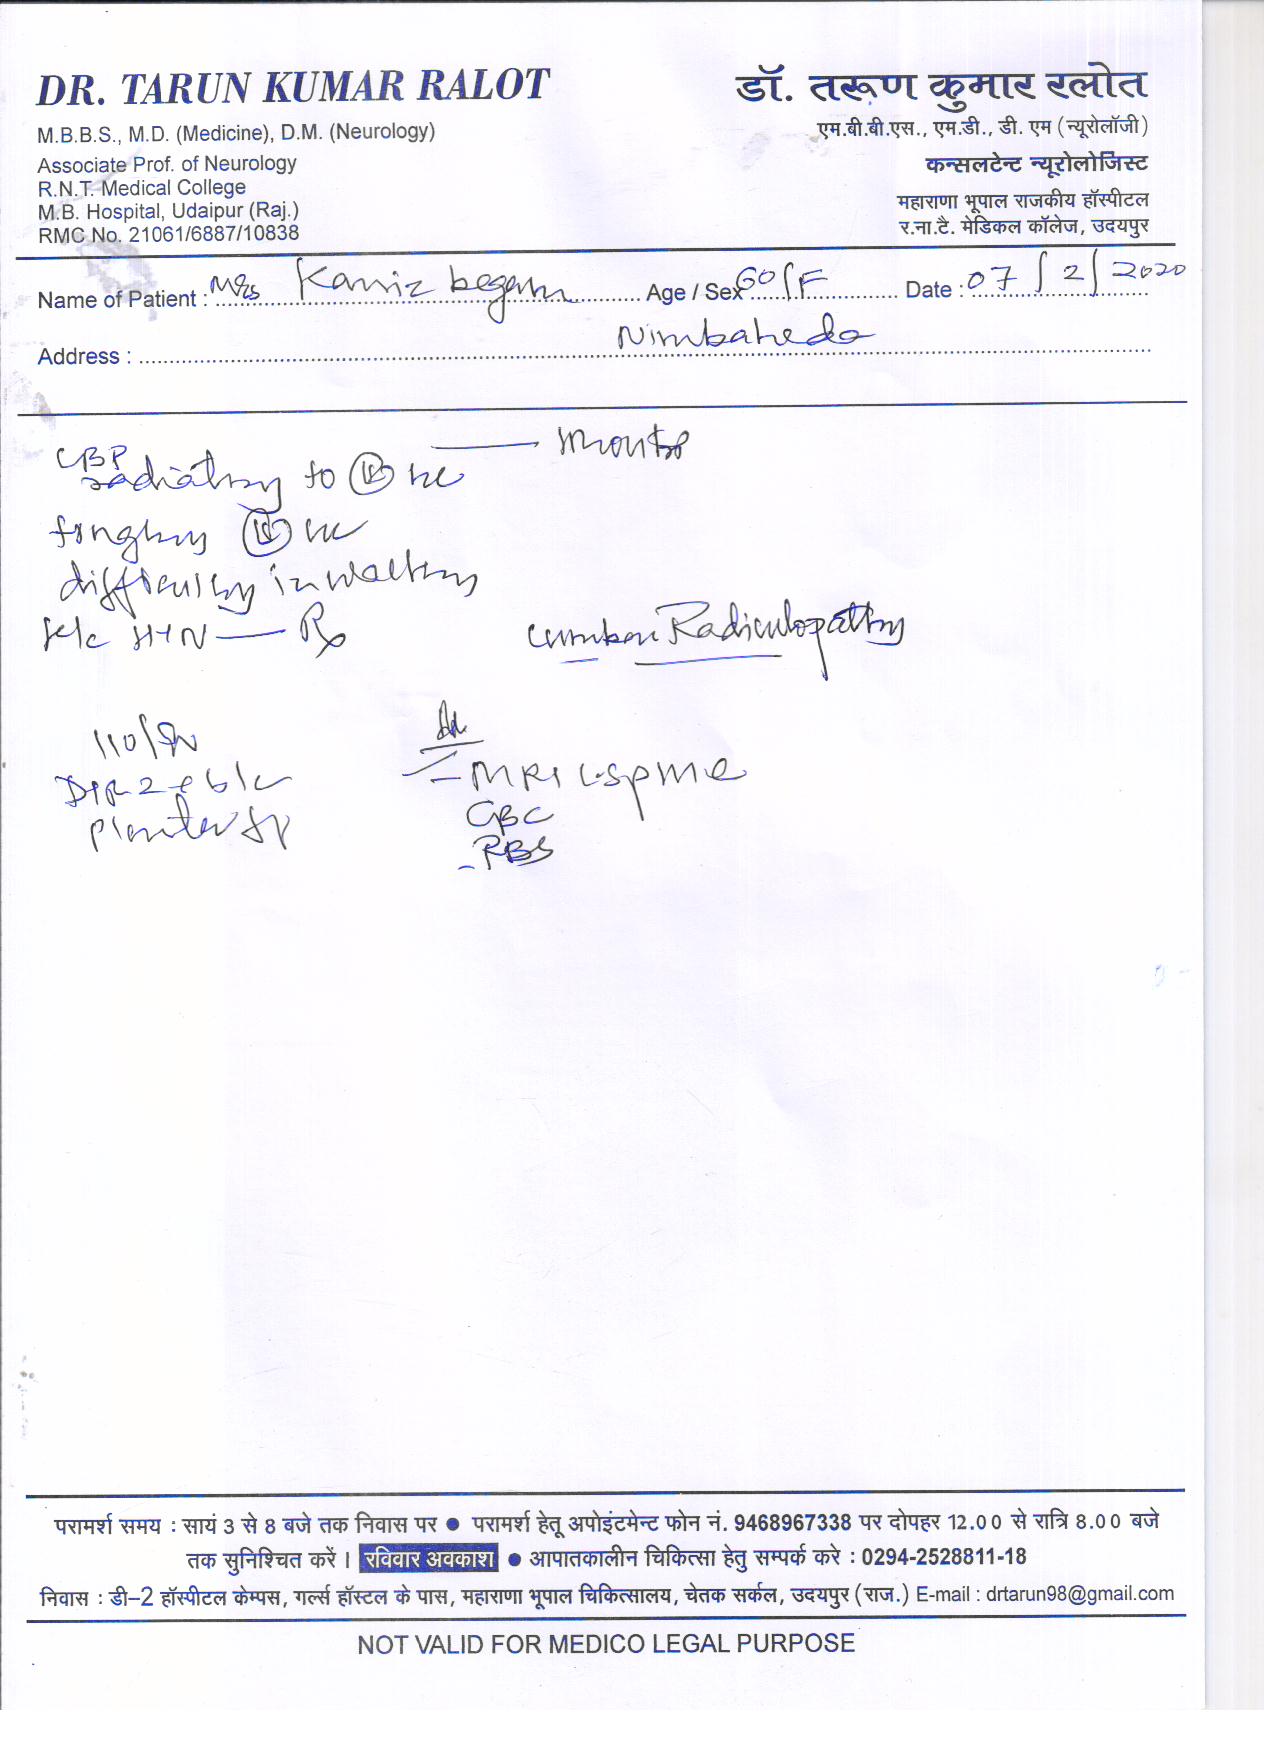 DR. TARUN KUMAR RALOT
M.B.B.S., M.D. (Medicine), D.M. (Neurology)
Associate Prof. of Neurology
R.N.T. Medical College
M.B. Hospital, Udaipur (Raj.)
RMC No. 21061/6887/10838
डॉ. तरूण कुमार रलोत
एम.बी.बी.एस., एम.डी., डी. एम (न्यूरोलॉजी)
कन्सलटेन्ट न्यूरोलोजिस्ट
महाराणा भूपाल राजकीय हॉस्पीटल
र.ना.टै. मेडिकल कॉलेज, उदयपुर
Name of Patient : Mrs Kaniz begam Age / Sex 60/F Date : 07/2/2020
Address : Nimbaheda
CBP
radiating to
tingling
difficulty in walking
HTN Rx
Lumbar Radiculopathy
110/
MRI L-Spine
Planter
CBC
- RBS
परामर्श समय : सायं 3 से 8 बजे तक निवास पर ● परामर्श हेतू अपोइंटमेन्ट फोन नं. 9468967338 पर दोपहर 12.00 से रात्रि 8.00 बजे
तक सुनिश्चित करें । रविवार अवकाश ● आपातकालीन चिकित्सा हेतु सम्पर्क करे : 0294-2528811-18
निवास : डी–2 हॉस्पीटल केम्पस, गर्ल्स हॉस्टल के पास, महाराणा भूपाल चिकित्सालय, चेतक सर्कल, उदयपुर (राज.) E-mail : drtarun98@gmail.com
NOT VALID FOR MEDICO LEGAL PURPOSE